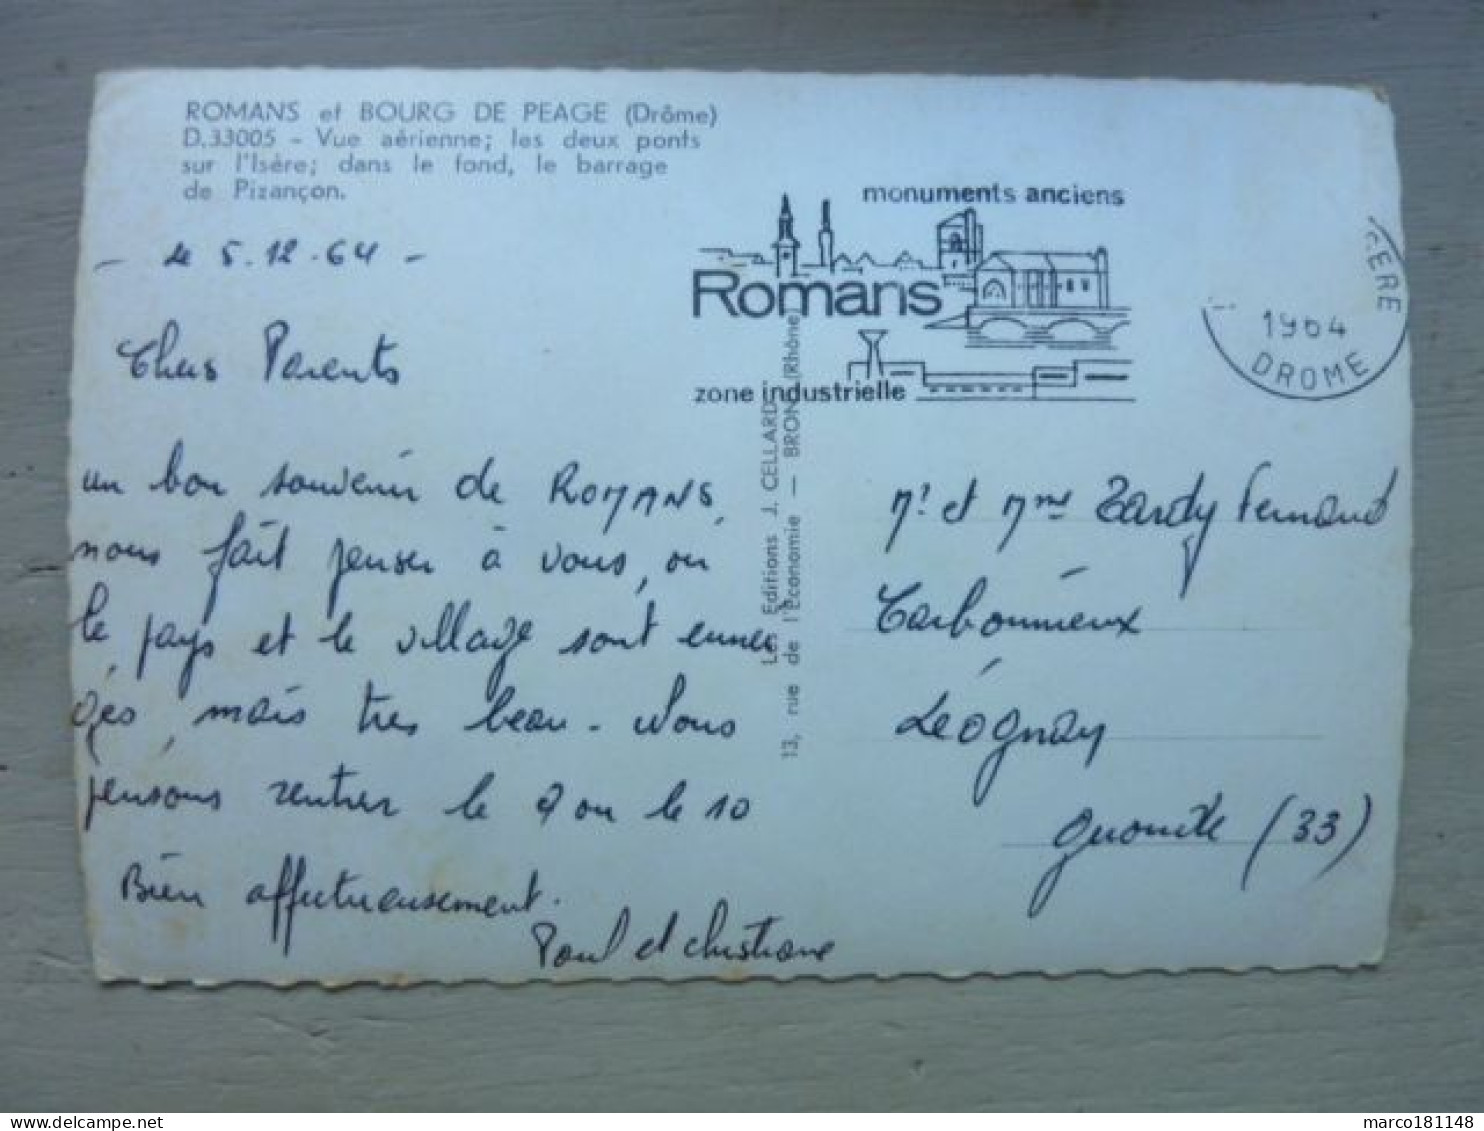 ROMANS et BOURG DE PEAGE (Drôme)
D.33005 - Vue aérienne; les deux ponts
sur l'Isère; dans le fond, le barrage
de Pizançon.
- le 5.12.64 -
Chers Parents
un bon souvenir de ROMANS,
nous fait penser à vous, ou
le pays et le village sont ennei
gés, mais tres beau - Nous
pensons rentrer le 9 ou le 10
Bien affectueusement.
Paul et Christiane
monuments anciens
Romans
zone industrielle
Les Editions J. CELLARD
13, rue de l'Economie — BRON (Rhône)
ISERE
1964
DROME
Mr et Mme Tardy Fernand
Carbonnieux
Léognan
Gironde (33)
marco181148